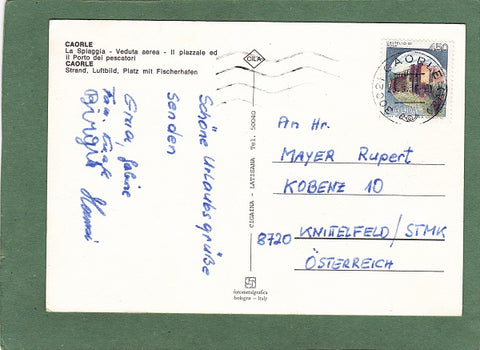 CAORLE
La Spiaggia - Veduta aerea - Il piazzale ed
il Porto dei pescatori
CAORLE
Strand, Luftbild, Platz mit Fischerhafen
Schöne Urlaubsgrüße
senden
Birgit
Hanni
CICAINA - LATISANA Tel. 50040
CILA
fotometalgrafica
bologna - italy
450
30021 CAORLE
An Hr.
MAYER Rupert
KOBENZ 10
8720 KNITTELFELD/STMK
ÖSTERREICH